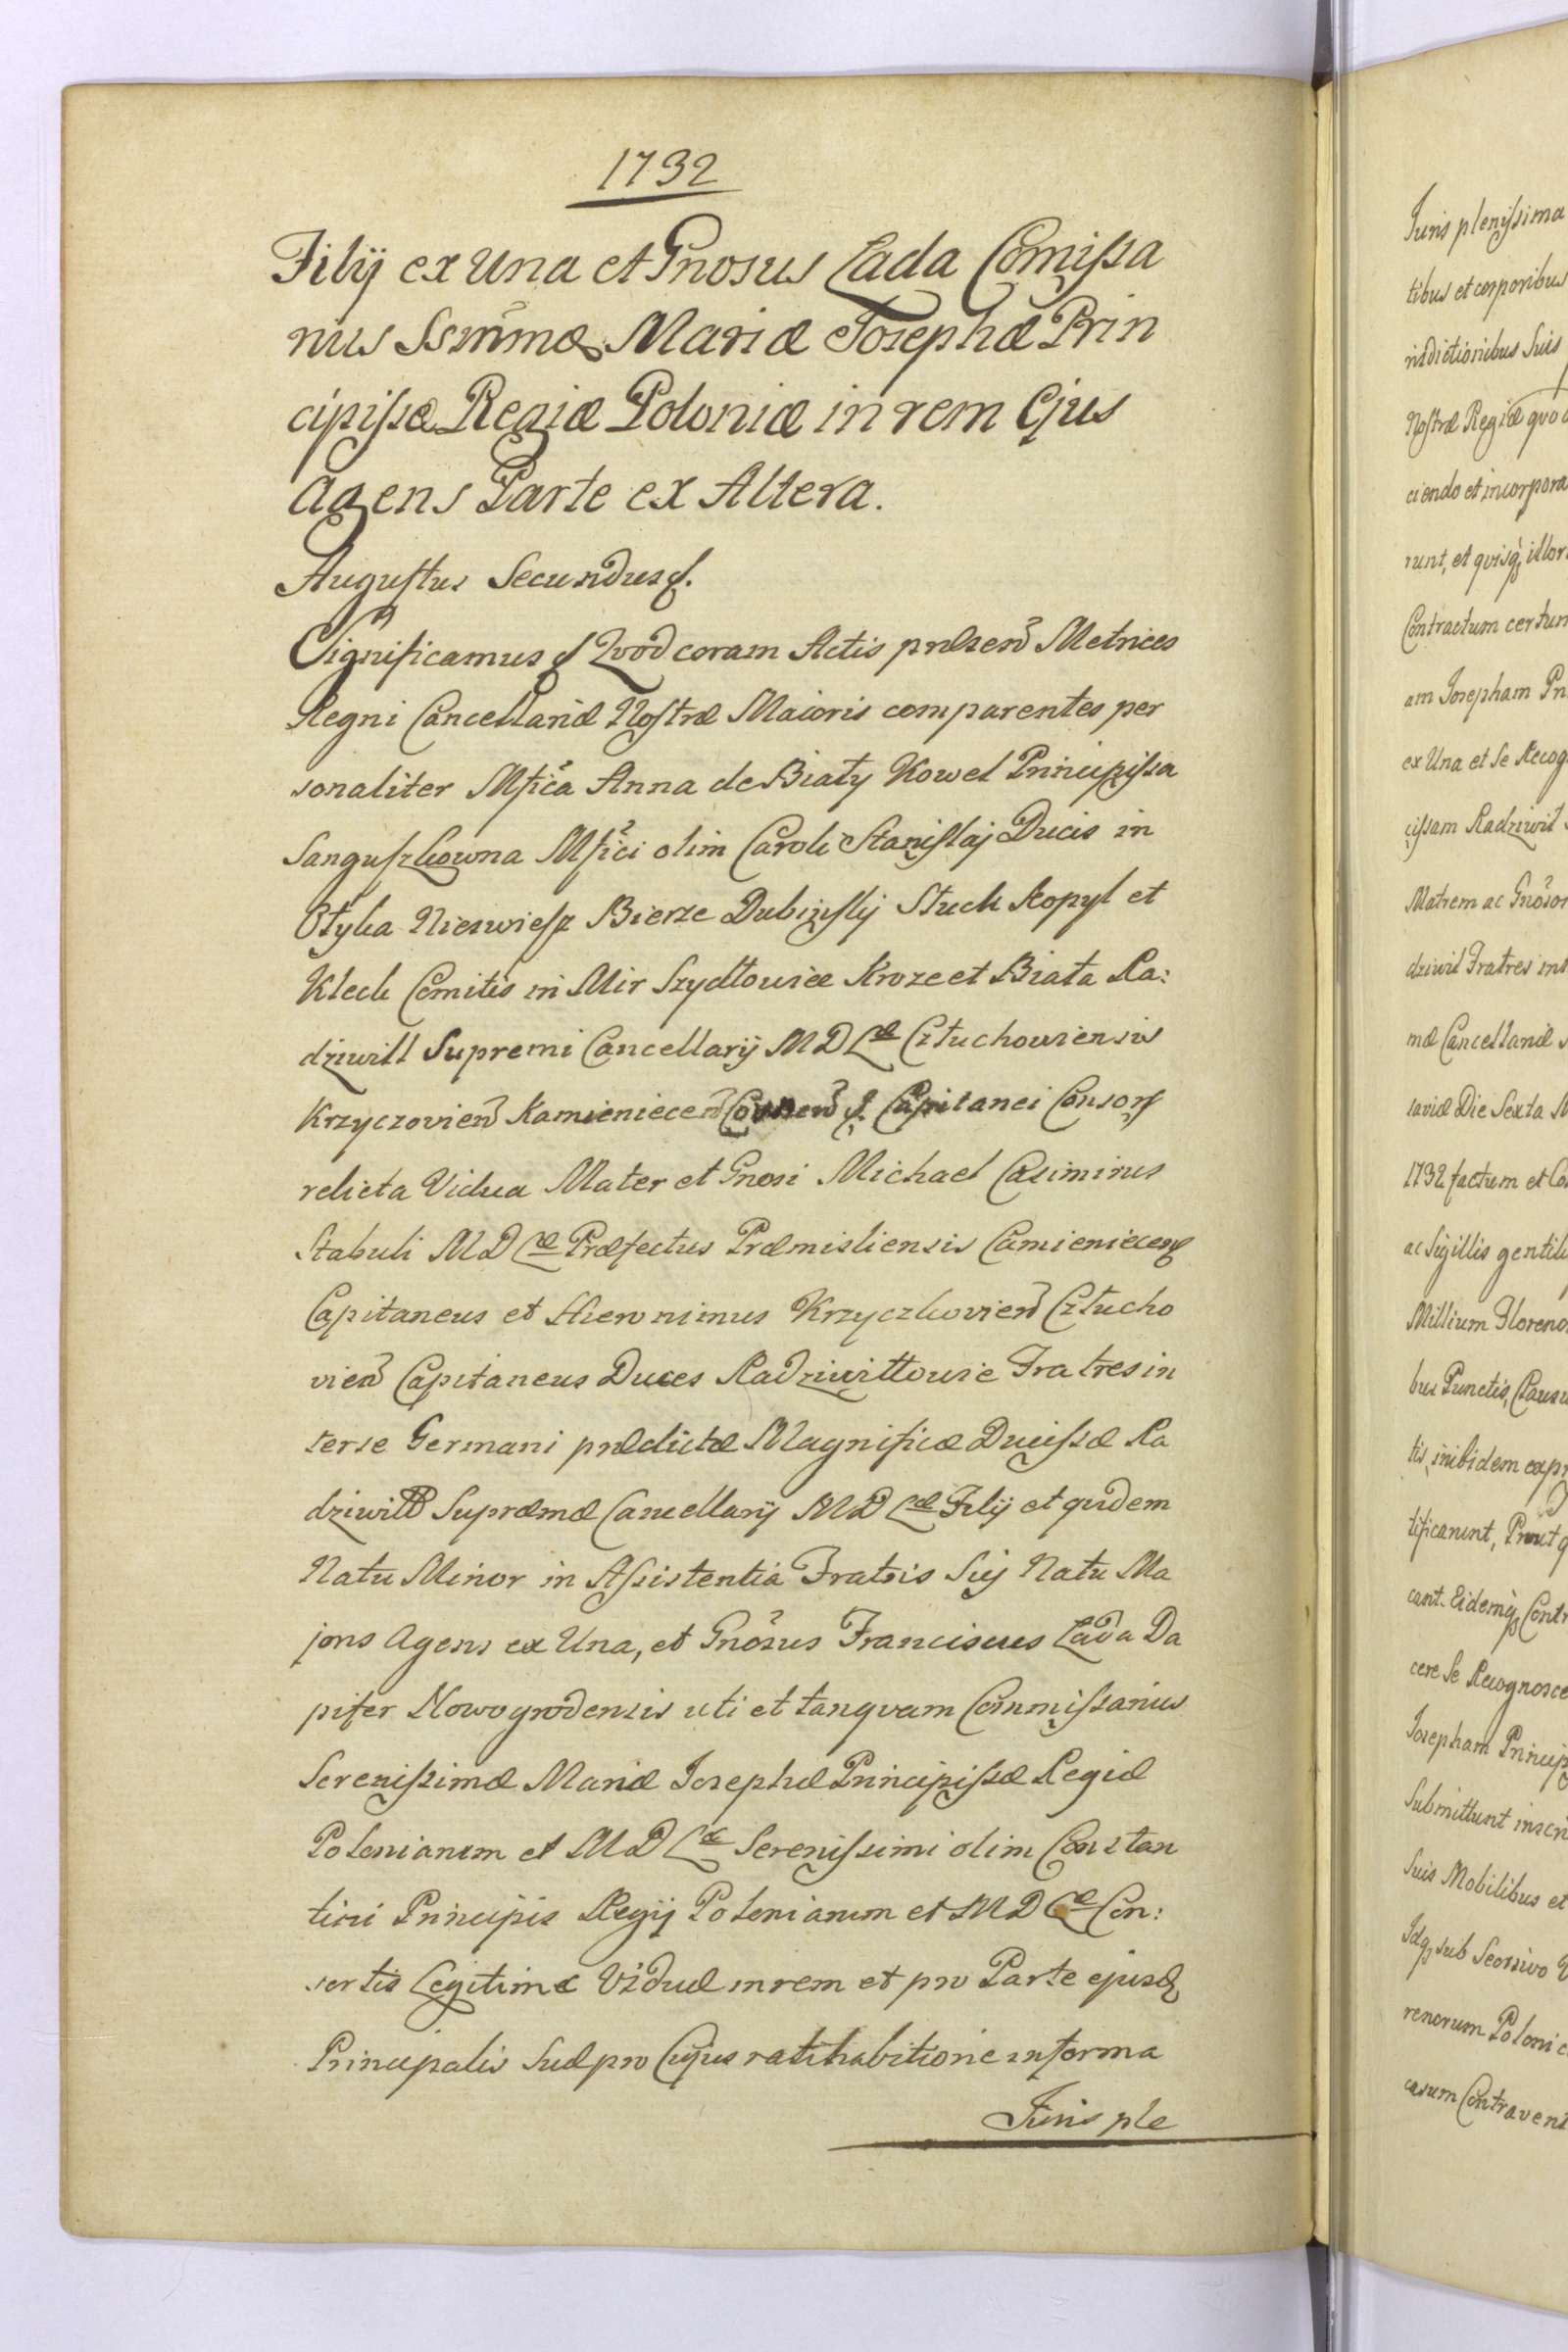 1732
Filÿ ex Una et Gnosus Łada Comissa
rius Ssm̃mæ Mariæ Josephæ Prin
cipissæ Regiæ Poloniæ in rem Ejus
Agens Parte ex Altera.
Augustus Secundus
Significamus Quod coram Actis præsen Metrices
Regni Cancellariæ Nostræ Maioris comparentes per
sonaliter Mfica Anna de Biały Kowel Principissa
Sanguszkowna Mfici olim Caroli Stanislaj Ducis in
Ołyka Nieswiesz Bierze Dubinslij Słuck Kopyl et
Kleck Comitis in Mir Szydłowiec Kroze et Biała Ra:
dziwill Supremi Cancellarÿ M D L Człuchoviensis
Krzyczovien Kamieniecen Capitanei Consors
relicta Vidua Mater et Gnosi Michael Casimirus
Stabuli M D L Præfectus Præmisliensis Camieniecen
Capitaneus et Hieronimus Krzyczkovien Człucho
vien Capitaneus Duces Radziwiłłowie Fratres in
terse Germani prædictæ Magnificæ Ducissæ Ra
dziwill Supræmæ Cancellarÿ M D L Filÿ et quidem
Natu Minor in Assistentia Fratris Sui Natu Ma
joris Agens ex Una, et Gnosus Franciscus Łada Da
pifer Nowogrodensis uti et tanquam Commissarius
Serenissimæ Mariæ Josephæ Principissæ Regiæ
Poloniarum et M D L Serenissimi olim Constan
tini Principis Regÿ Poloniarum et M D L Con:
sortis Legitimæ Viduæ in rem et pro Parte ejusd
Principalis Suæ pro Cujus ratihabitione in forma
Juris ple
Juris plenissima
tibus et corporibus
risdictionibus Suis
Nostræ Regiæ quo
ciendo et incorpora
runt, et quisq illor
Contractum certum
am Josepham Prin
ex Una et Se Recog
cissam Radziwil
Matrem ac Gnosos
dziwil Fratres int
mæ Cancellariæ
saviæ Die Sexta
1732 factum et Co
ac Sigillis gentili
Millium Floreno
bus Punctis, Clausu
tis, inibidem expr
tificarunt, Prout q
cant. Eidemq Contr
cere Se Recognosce
Josepham Princip
Submittunt inscri
Suis Mobilibus et
Idq sub Seorsivo V
renorum Polonic
casum Contraveni